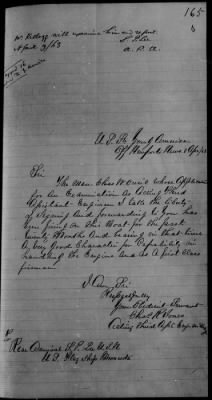 165
Mr Kellogg will examine him and report
S P Lee
A. R. A.
U.S. Str Young America
Off Newport News
Sir
The Man Chas W whose Application
for an Examination as Acting Third
Assistant Engineer I take the liberty
of Signing and forwarding to you has
been firing on this Boat for the past
twenty Months and bearing in that time
A very Good Character for Reliability in
handling the Engine and as A first Class
fireman.
I Am Sir
Respectfully
Your Obedient Servant
Chas. H. Jones
Acting Third Ast Engr
To
Rear Admiral S. P. Lee U.S.N.
U.S. Flag Ship Minnesota